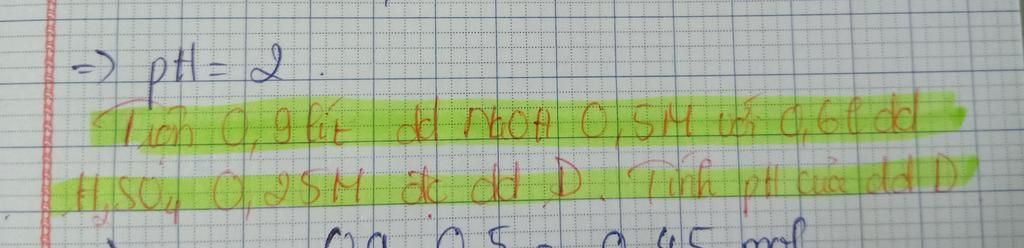 => pH = 2.
Trộn 0,9 lít dd NaOH 0,5M với 0,6l dd
H₂SO₄ 0,25M đc dd D. Tính pH của dd D
0,5 = 0,45 mol